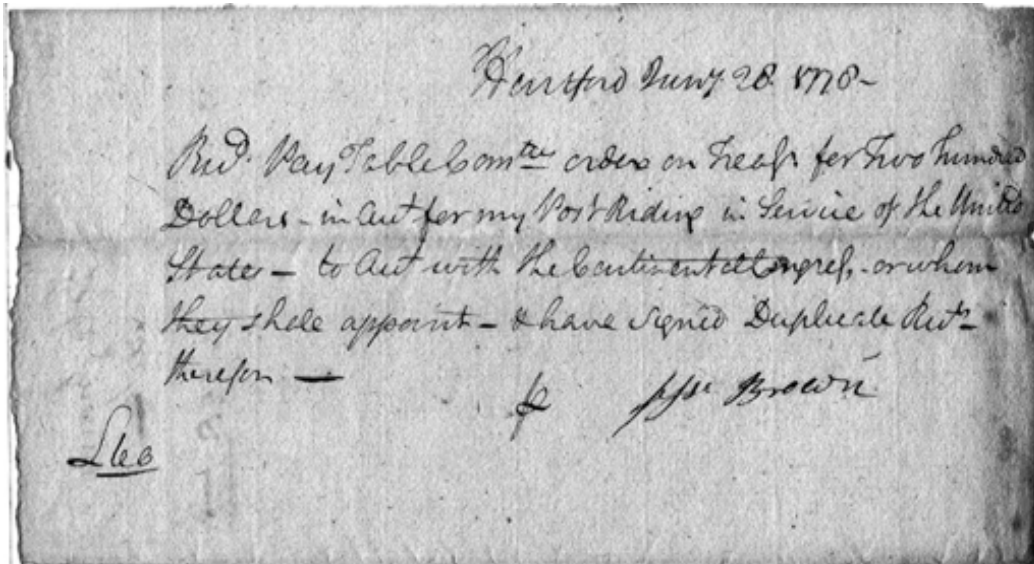 Hartford Jany 28. 1778 -
Recd. Pay Table Comtee order on Treasr for Two hundred
Dollars - in Acct for my Post Riding in Service of the United
States - to Acct with the Continental Congress - or whom
they shale appoint - & have signed Duplicate Rects
therefor —
£60
pr Jesse Brown